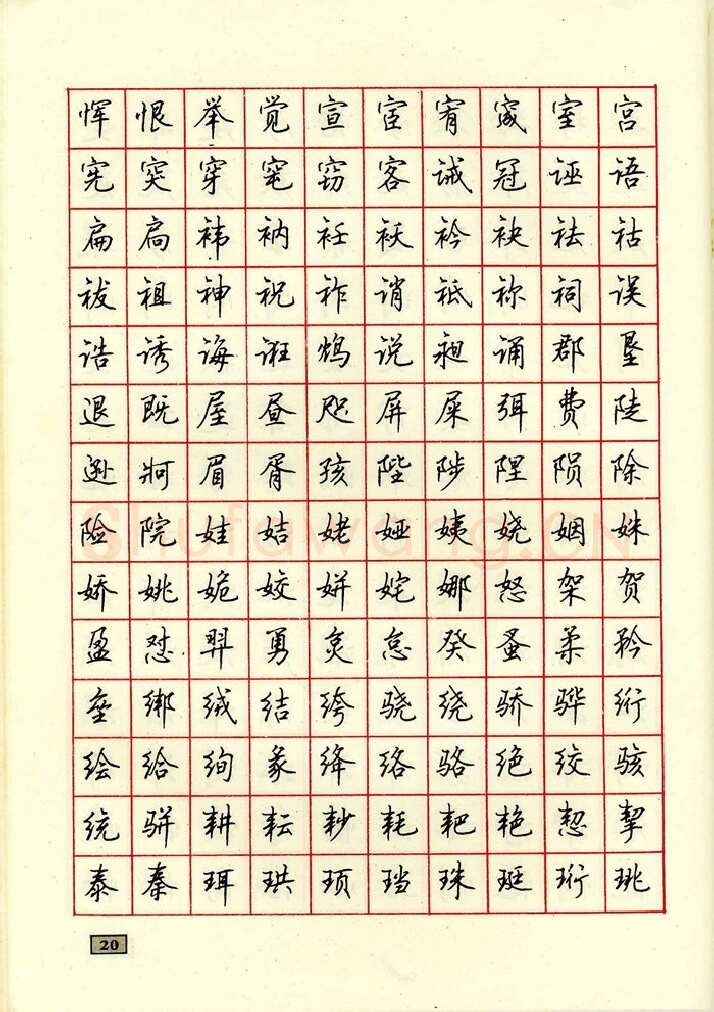 恽恨举觉宣宦宥宬室宫
宪突穿窀窃客诫冠诬语
扁扃袆衲衽袄衿袂祛祜
祓祖神祝祚诮祗祢祠误
诰诱诲诳鸩说昶诵郡垦
退既屋昼咫屏屎弭费陡
逊牁眉胥孩陛陟陧陨除
险院娃姞姥娅姨娆姻姝
娇姚姽姣姘姹娜怒架贺
盈怼羿勇炱怠癸蚤柔矜
垒绑绒结绔骁绕骄骅绗
绘给绚彖绛络骆绝绞骇
统骈耕耘耖耗耙艳恝挈
泰秦珥珙顼珰珠珽珩珧
20
ShufaWang.CN